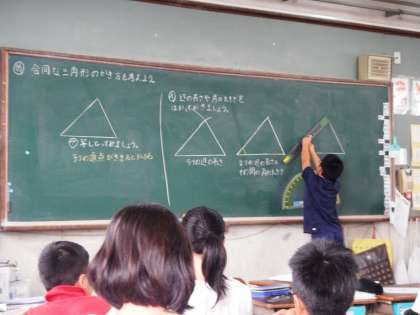 合同な三角形のかき方を考えよう。
写しとってみましょう。
3つの頂点がきまるといい
辺の長さや角の大きさを
はかってかきましょう。
3つの辺の長さ
2つの辺の長さと
その間の角の大きさ